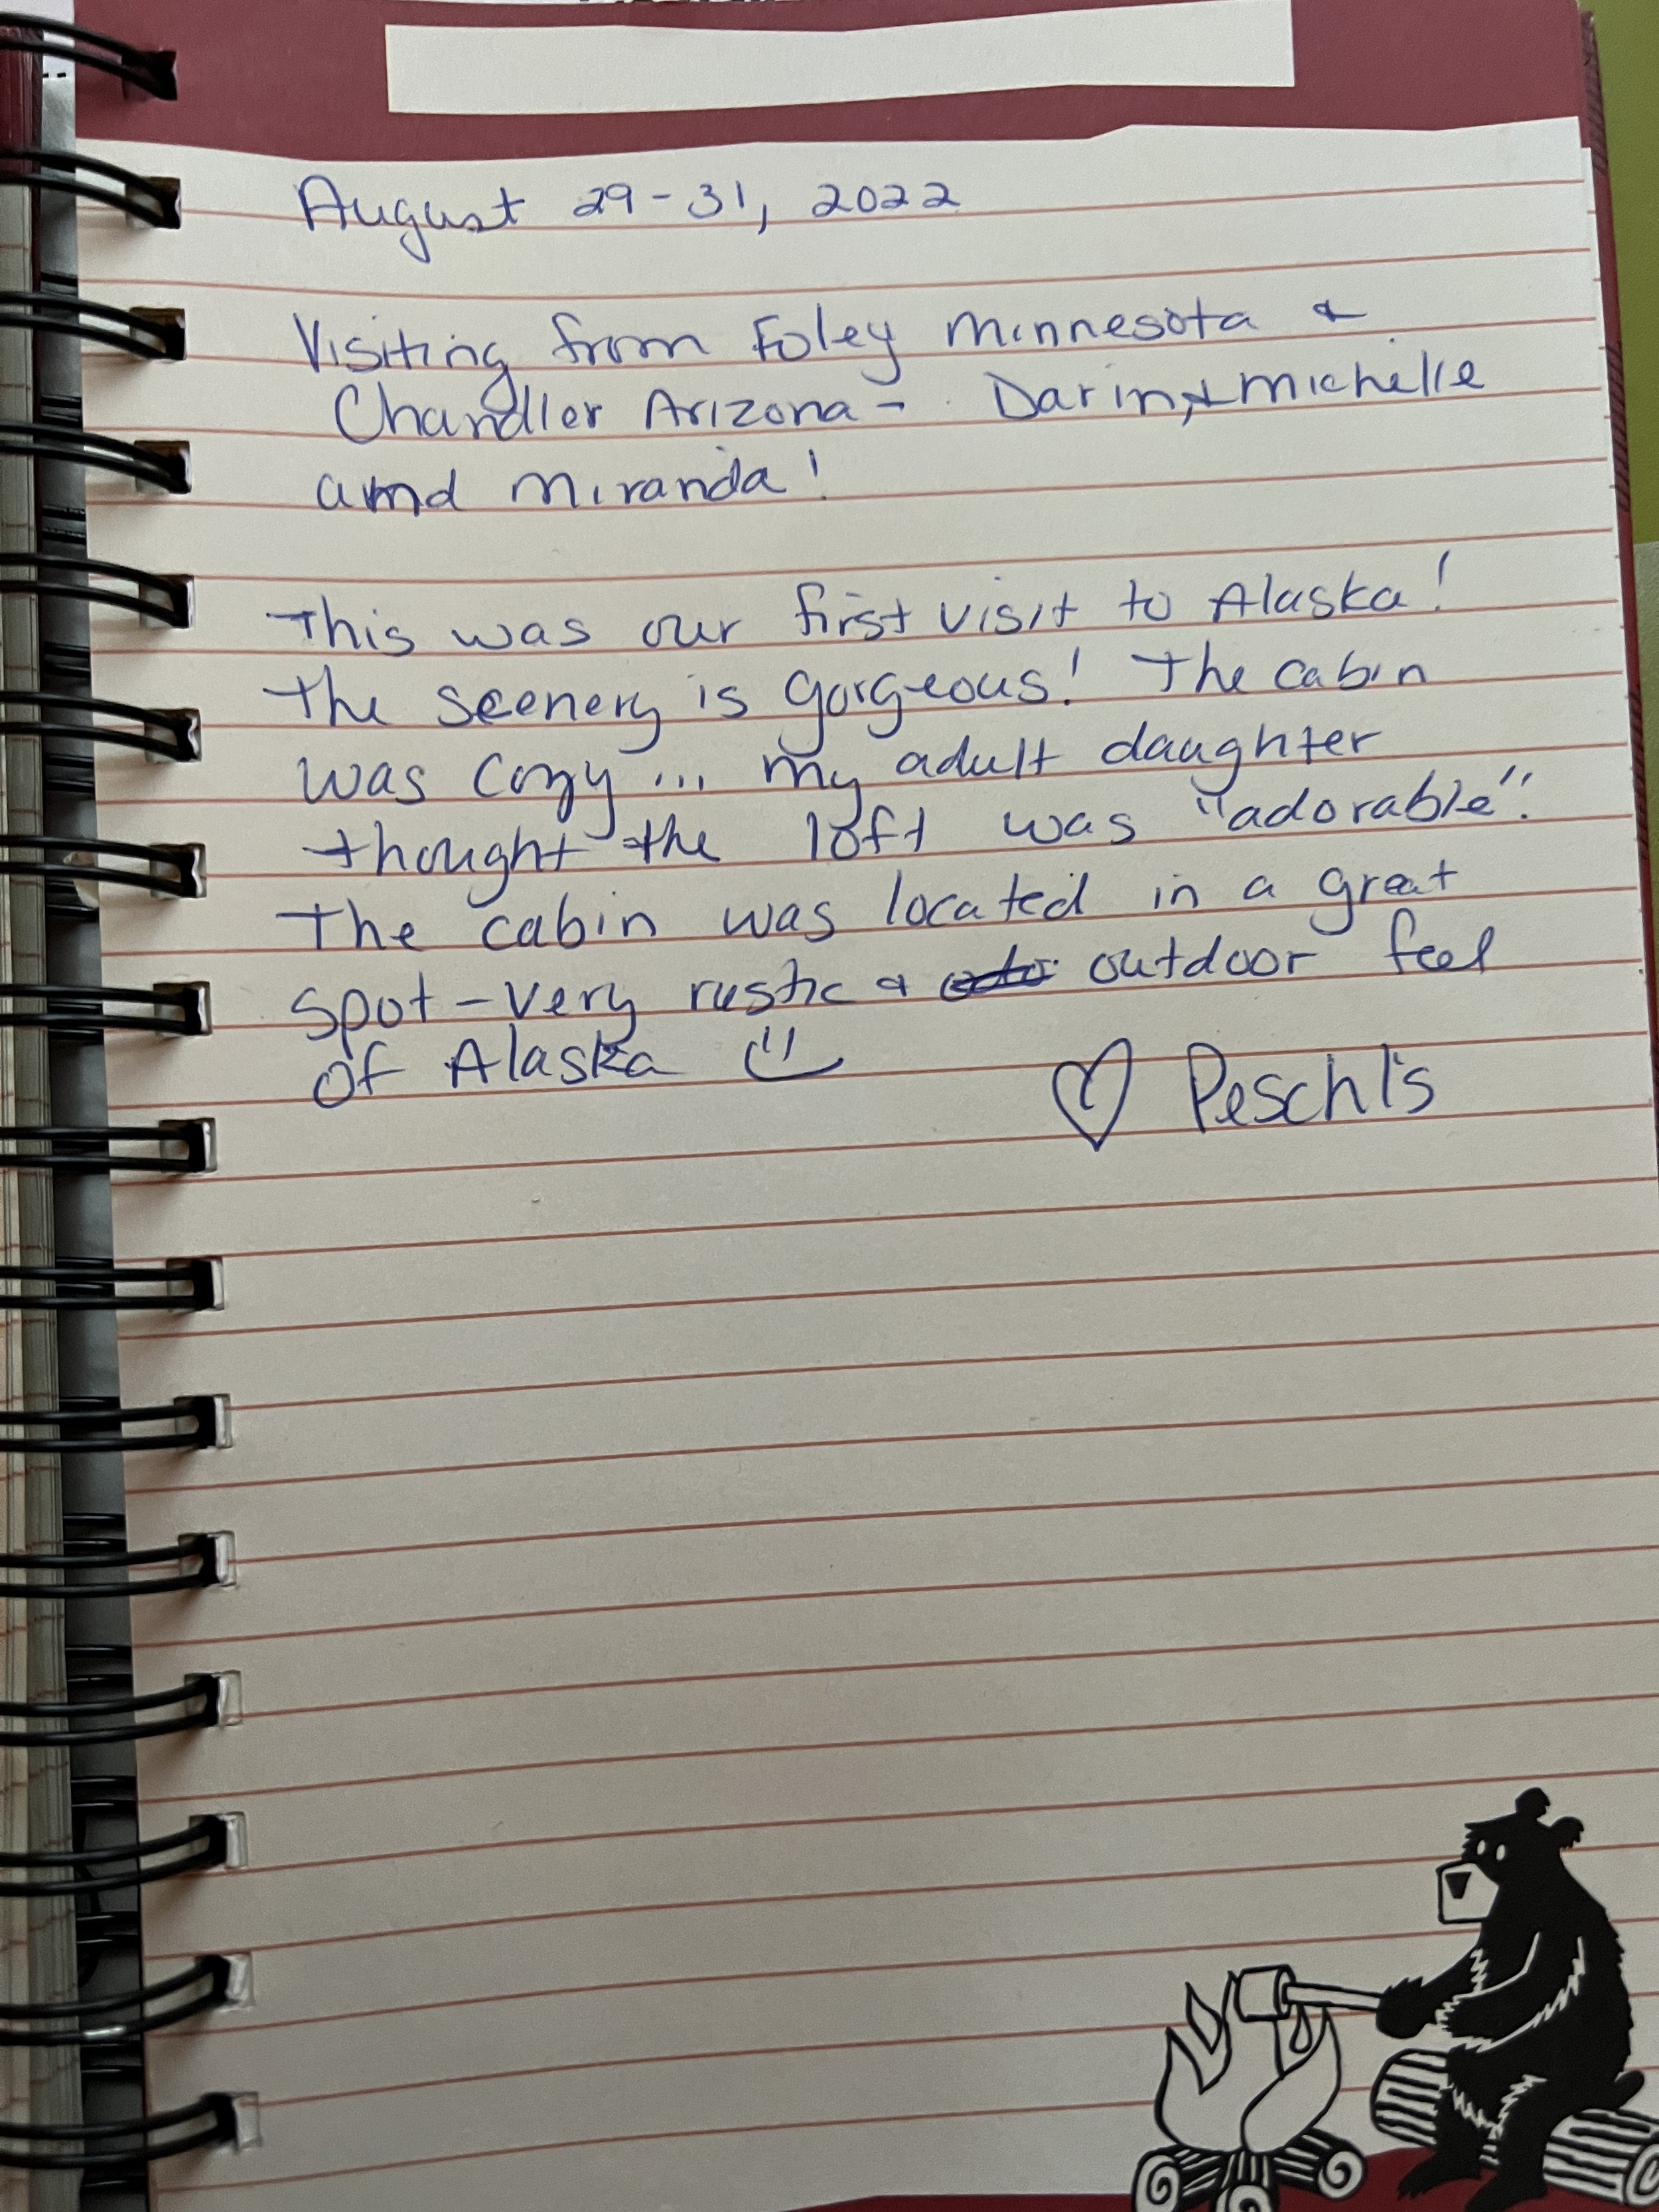 August 29-31, 2022
Visiting from Foley Minnesota &
Chandler Arizona - Darin, & Michelle
amd Miranda!
This was our first visit to Alaska!
The scenery is gorgeous! The cabin
was cozy ... my adult daughter
thought the loft was "adorable".
The cabin was located in a great
spot - very rustic & outdoor feel
of Alaska
Peschl's